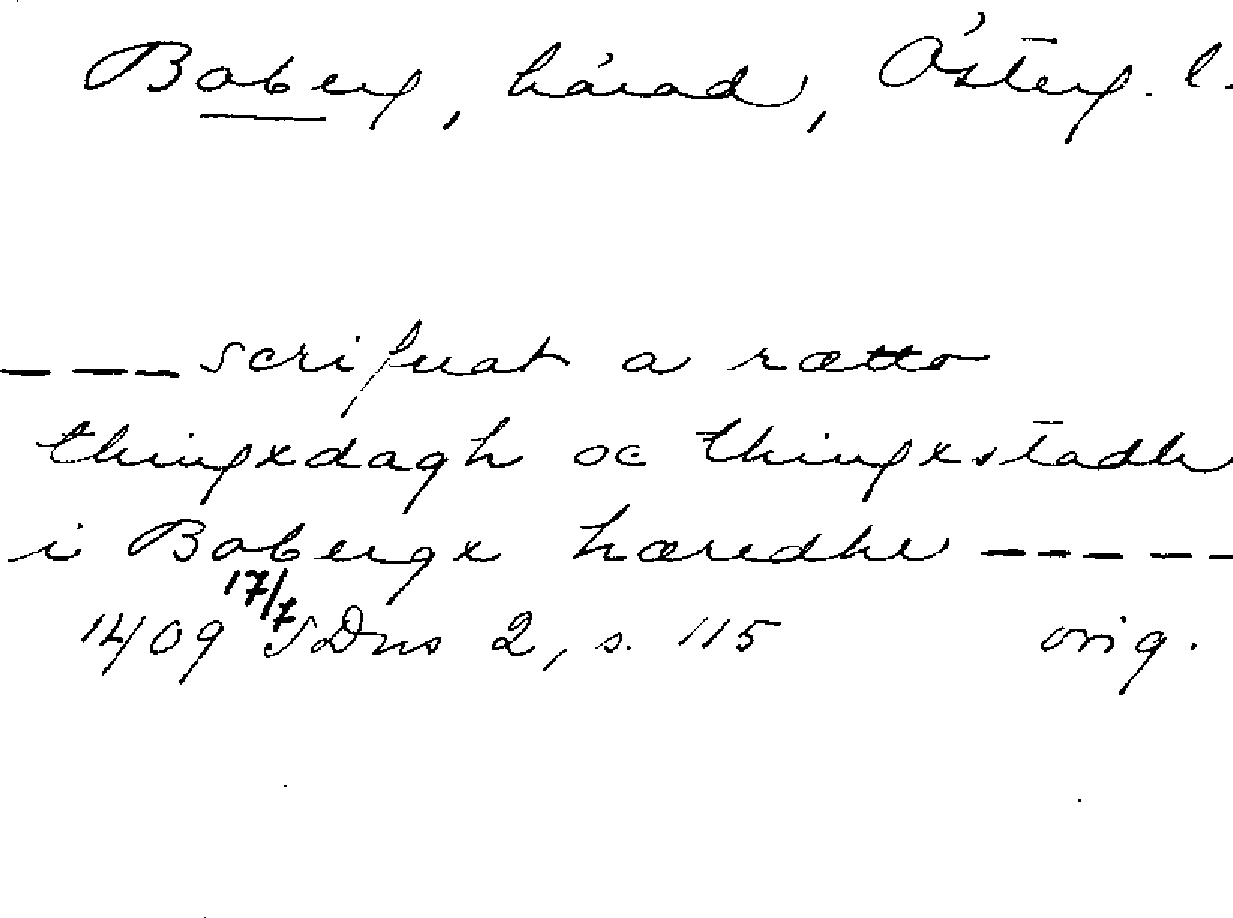 Boberg, härad, Österg. l.
--- scrifuat a rætto
thingxdagh oc thingxstadh
i Bobergx hæredhe -----
1409 17/7 SDns 2, s. 115 orig.